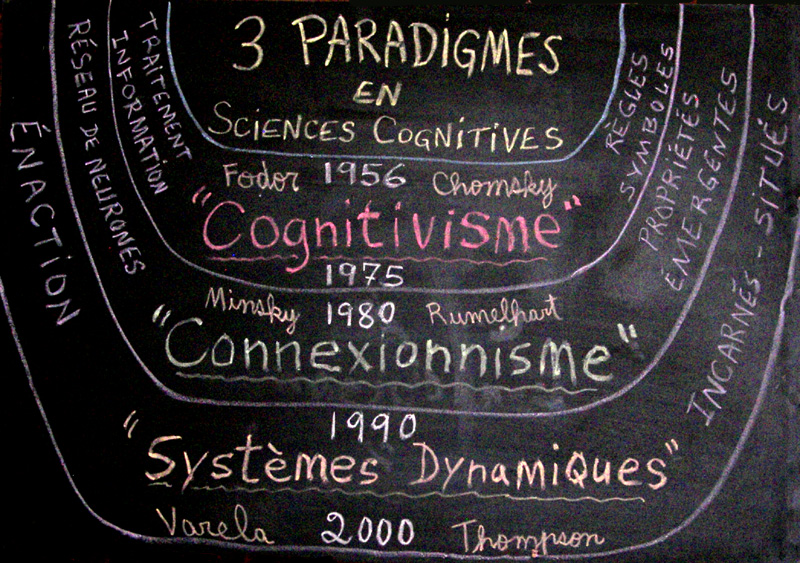 3 PARADIGMES
EN
SCIENCES COGNITIVES
Fodor 1956 Chomsky
"Cognitivisme"
1975
Minsky 1980 Rumelhart
"Connexionnisme"
1990
"Systèmes Dynamiques"
Varela 2000 Thompson
TRAITEMENT
INFORMATION
RÉSEAU DE NEURONES
ÉNACTION
RÈGLES
SYMBOLES
PROPRIÉTÉS
ÉMERGENTES
INCARNÉS - SITUÉS